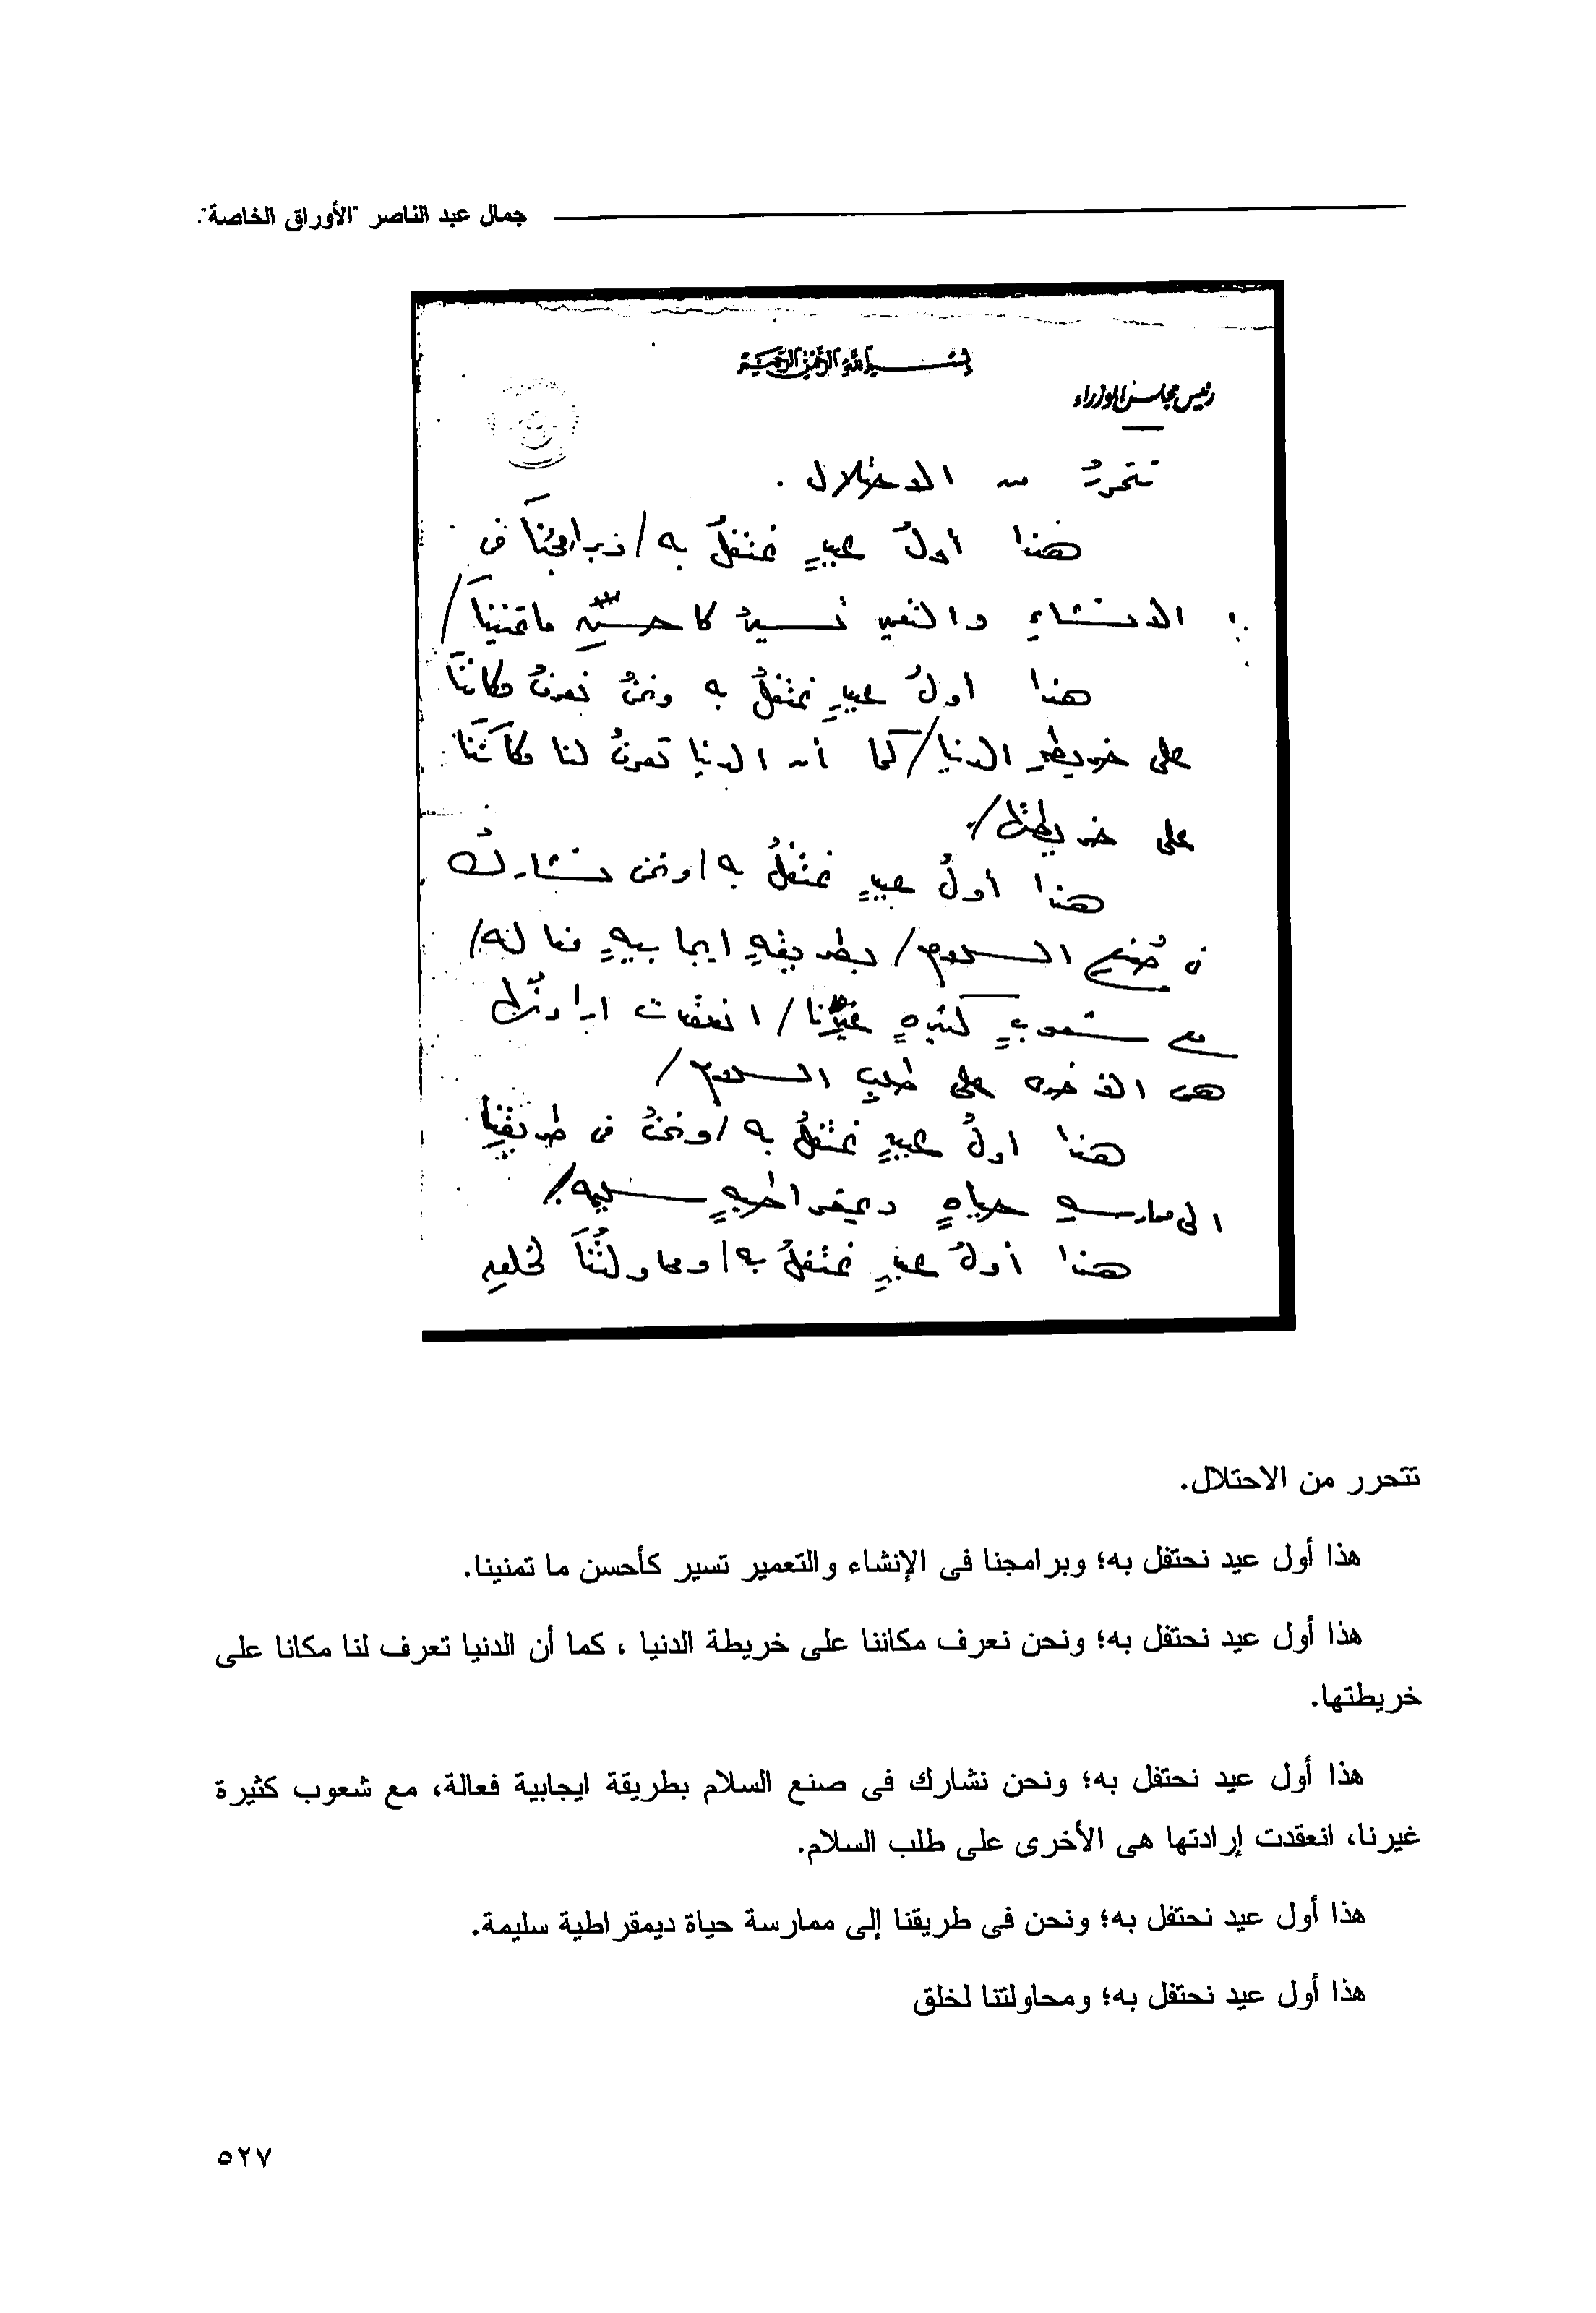 جمال عبد الناصر "الأوراق الخاصة".
بسم الله الرحمن الرحيم
رئيس مجلس الوزراء
تتحررُ من الاحتلال .
هذا أولُ عيدٍ نحتفلُ به / وبرامجُنَا فى
الانشاءِ والتعمير تسيرُ كاحسنِ ما تمنيناَ /
هذا اولُ عيدٍ نحتفلُ به ونحنُ نعرفُ مكاننَا
على خريطةِ الدنيا / كما أن الدنيا تعرفُ لنا مكاَنَنا
على خريطتها /.
هذا أولُ عيدٍ نحتفلُ به / ونحن نشاركُ
فى صُنعِ السلام / بطريقةٍ ايجابيةٍ فعاله /
مع شعوبٍ كثيرهٍ غيرنا / انعقدت ارادتُها
هى الاخرى على طلبِ السلام /
هذا اولُ عيدٍ نحتفلُ به / ونحنُ فى طريقِنا
الى ممارسةِ حياهٍ ديمقراطيهٍ سليمه /.
هذا أولُ عيدٍ نحتفلُ به / ومحاولتُنَا لخلقِ
تتحرر من الاحتلال.
هذا أول عيد نحتفل به؛ وبرامجنا فى الإنشاء والتعمير تسير كأحسن ما تمنينا.
هذا أول عيد نحتفل به؛ ونحن نعرف مكاننا على خريطة الدنيا ، كما أن الدنيا تعرف لنا مكانا على
خريطتها.
هذا أول عيد نحتفل به؛ ونحن نشارك فى صنع السلام بطريقة ايجابية فعالة، مع شعوب كثيرة
غيرنا، انعقدت إرادتها هى الأخرى على طلب السلام.
هذا أول عيد نحتفل به؛ ونحن فى طريقنا إلى ممارسة حياة ديمقراطية سليمة.
هذا أول عيد نحتفل به؛ ومحاولتنا لخلق
٥٢٧